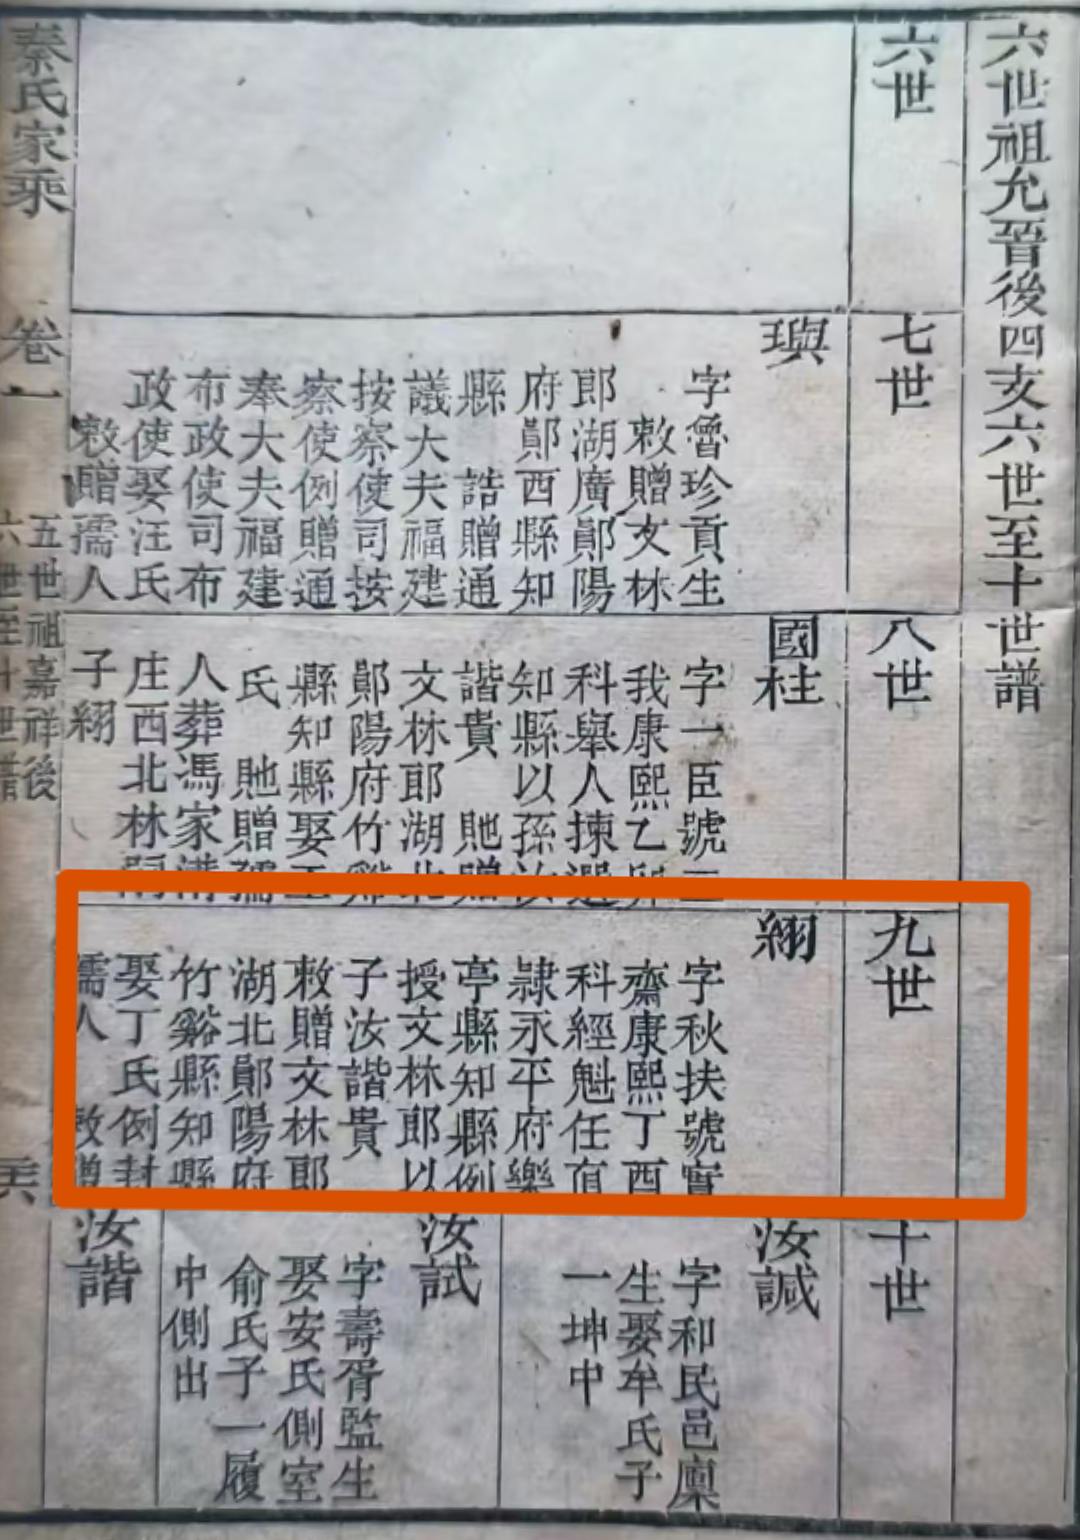 六世祖允晉後四支六世至十世譜
六世
七世
璵
字魯珍貢生
敕贈文林
郎湖廣鄖陽
府鄖西縣知
縣 誥贈通
議大夫福建
按察使司按
察使例贈通
奉大夫福建
布政使司布
政使娶汪氏
敕贈孺人
八世
國柱
字一臣號
我康熙乙
科舉人揀選
知縣以孫汝
諧貴 貤贈
文林郎湖北
鄖陽府竹谿
縣知縣娶王
氏 貤贈孺
人葬馮家溝
庄西北林
子綗
九世
綗
字秋扶號實
齋康熙丁酉
科經魁任直
隷永平府樂
亭縣知縣例
授文林郎以
子汝諧貴
敕贈文林郎
湖北鄖陽府
竹谿縣知縣
娶丁氏例封
孺人 敕贈
十世
汝諴
字和民邑廩
生娶牟氏子
一坤中
汝試
字壽胥監生
娶安氏側室
俞氏子一履
中側出
汝諧
秦氏家乘 卷一
五世祖嘉祥後
六世至十世譜